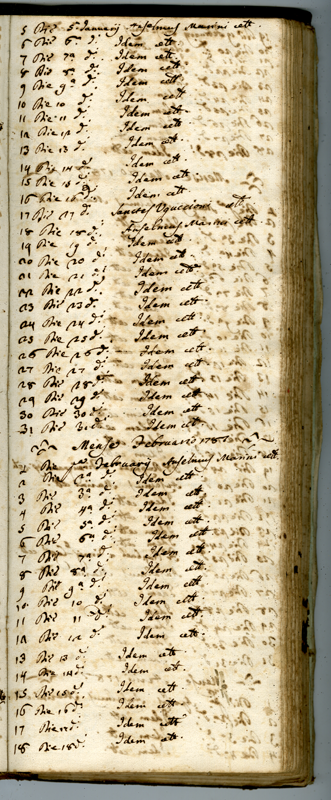 5 Die 5 Januarij Anselmus Marini cett.
6 Die 6ª dᵃ Idem cett.
7 Die 7ª dᵃ Idem cett.
8 Die 8ª dᵃ Idem cett.
9 Die 9ª dᵃ Idem cett.
10 Die 10 dᵃ Idem cett.
11 Die 11 dᵃ Idem cett.
12 Die 12 dᵃ Idem cett.
13 Die 13 dᵃ Idem cett.
14 Die 14 dᵃ Idem cett.
15 Die 15 dᵃ Idem cett.
16 Die 16 dᵃ Idem cett.
17 Die 17 dᵃ Sanctes Uguccioni cett.
18 Die 18 dᵃ Anselmus Marini cett.
19 Die 19 dᵃ Idem cett.
20 Die 20 dᵃ Idem cett.
21 Die 21 dᵃ Idem cett.
22 Die 22 dᵃ Idem cett.
23 Die 23 dᵃ Idem cett.
24 Die 24 dᵃ Idem cett.
25 Die 25 dᵃ Idem cett.
26 Die 26 dᵃ Idem cett.
27 Die 27 dᵃ Idem cett.
28 Die 28 dᵃ Idem cett.
29 Die 29 dᵃ Idem cett.
30 Die 30 dᵃ Idem cett.
31 Die 31 dᵃ Idem cett.
Mense Februarii
1 Die pᵃ Februarij Anselmus Marini cett.
2 Die 2ª dᵃ Idem cett.
3 Die 3ª dᵃ Idem cett.
4 Die 4ª dᵃ Idem cett.
5 Die 5ª dᵃ Idem cett.
6 Die 6ª dᵃ Idem cett.
7 Die 7ª dᵃ Idem cett.
8 Die 8ª dᵃ Idem cett.
9 Die 9ª dᵃ Idem cett.
10 Die 10 dᵃ Idem cett.
11 Die 11 dᵃ Idem cett.
12 Die 12 dᵃ Idem cett.
13 Die 13 dᵃ Idem cett.
14 Die 14 dᵃ Idem cett.
15 Die 15 dᵃ Idem cett.
16 Die 16 dᵃ Idem cett.
17 Die 17 dᵃ Idem cett.
18 Die 18 dᵃ Idem cett.